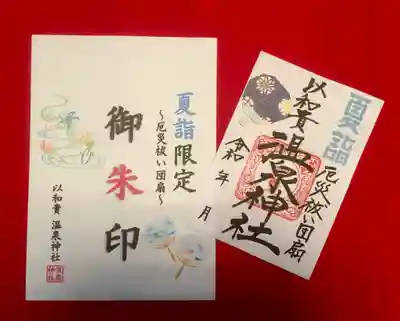 夏詣限定
～厄災祓い団扇～
御朱印
以和貴 温泉神社
夏詣
厄災祓い団扇
以和貴
温泉神社
令和 年 月